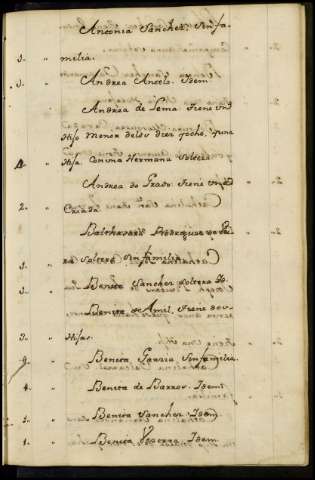 Antonia Sanchez Sinfa
1. " milia.
1. " Andrea Antelo. Idem.
Andrea de Lema tiene un
Hijo menor de los diez y ocho, y una
4. " Hija con una Hermana soltera
Andrea do Prado tiene una
2. " Criada
Balthasara Rodriguez
1. " soltera sin familia
1. " Benita Sanchez soltera Id.
Benita de Amil, tiene dos
3. " Hijas.
9. " Benita Garzia Sinfamilia.
4. " Benita de Barros. Idem.
1. " Benita Sanchez Idem.
1. " Benita Idem.